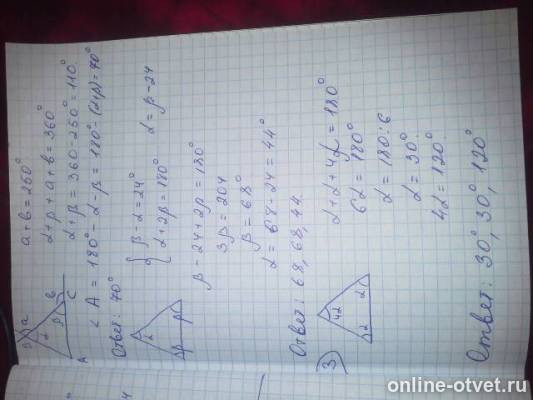 a+b=250°
α+β+a+b=360°
α+β=360-250°=110°
∠A=180°-α-β=180°-(α+β)=70°
Ответ: 70°
{ β-α=24°
α+2β=180°
α=β-24
β-24+2β=180°
3β=204
β=68°
α=68-24=44°
Ответ: 68, 68, 44.
3)
α+α+4α=180°
6α=180°
α=180:6
α=30°
4α=120°
Ответ: 30°, 30°, 120°
a
b
α
β
B
C
A
α
β
β
4α
α
α
online-otvet.ru